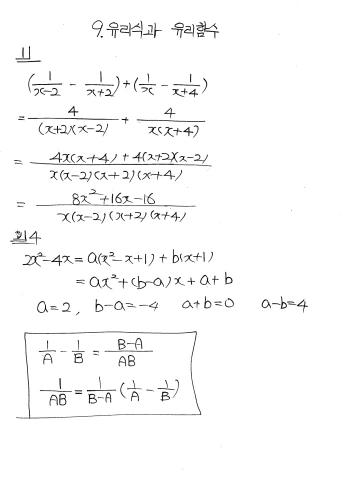 9. 유리식과 유리함수
1)
(1/(x-2) - 1/(x+2)) + (1/x - 1/(x+4))
= 4/((x+2)(x-2)) + 4/(x(x+4))
= (4x(x+4) + 4(x+2)(x-2))/(x(x-2)(x+2)(x+4))
= (8x²+16x-16)/(x(x-2)(x+2)(x+4))
4
2x²-4x = a(x²-x+1) + b(x+1)
= ax² + (b-a)x + a+b
a=2, b-a=-4 a+b=0 a-b=4
1/A - 1/B = (B-A)/AB
1/AB = 1/(B-A) (1/A - 1/B)